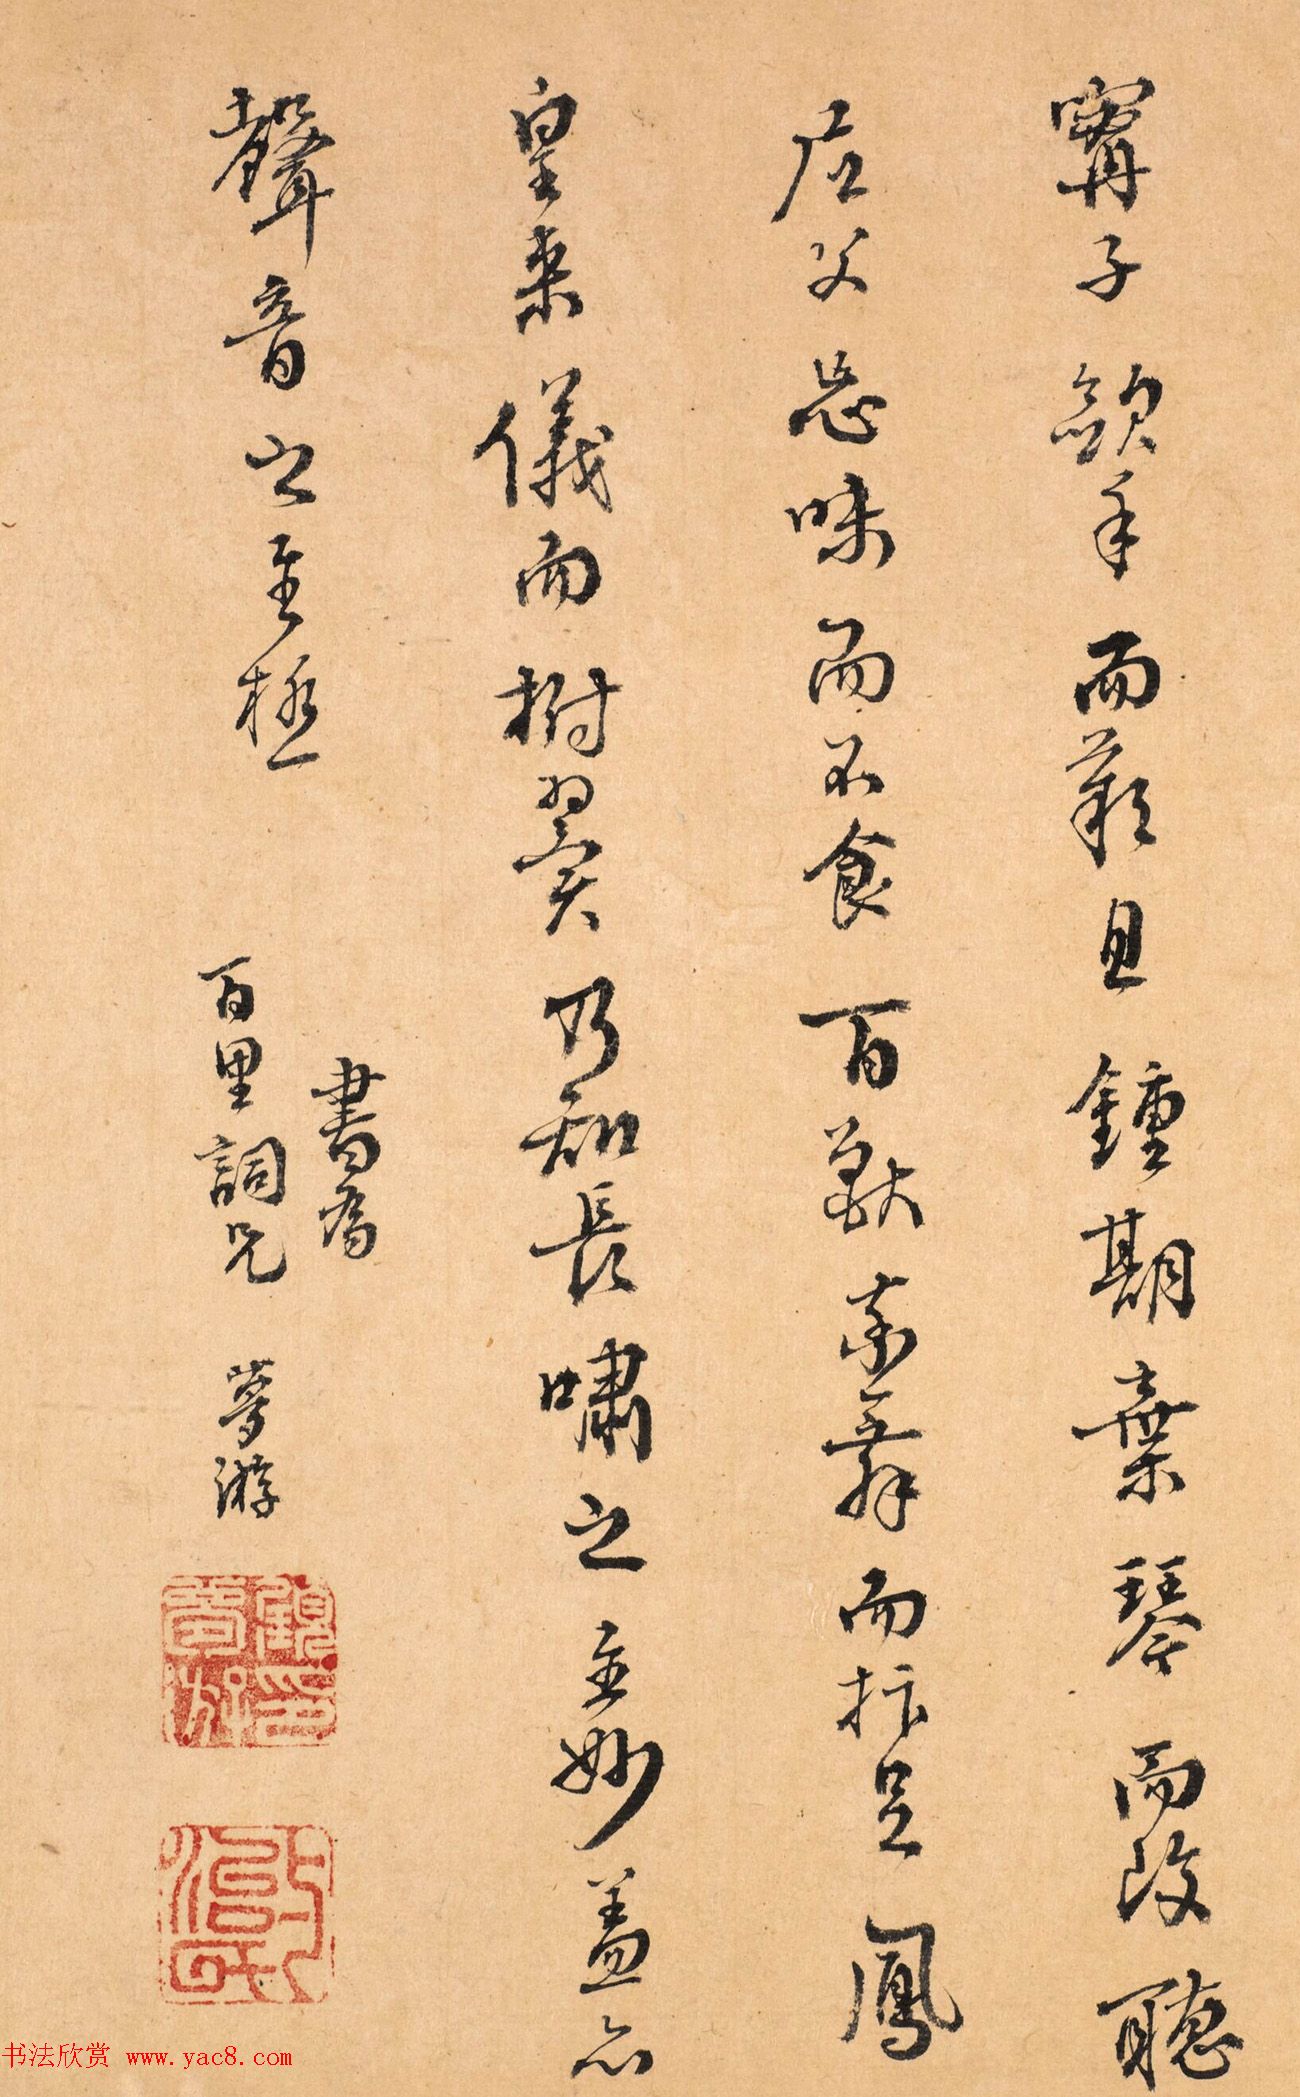 甯子歛手而歎息鍾期棄琴而改聽
尼父忘味而不食百獸率舞而抃足鳳
皇来儀而拊翼乃知長嘯之至妙蓋亦
聲音之至極
書為
百里詞兄 夢游
书法欣赏 www.yac8.com